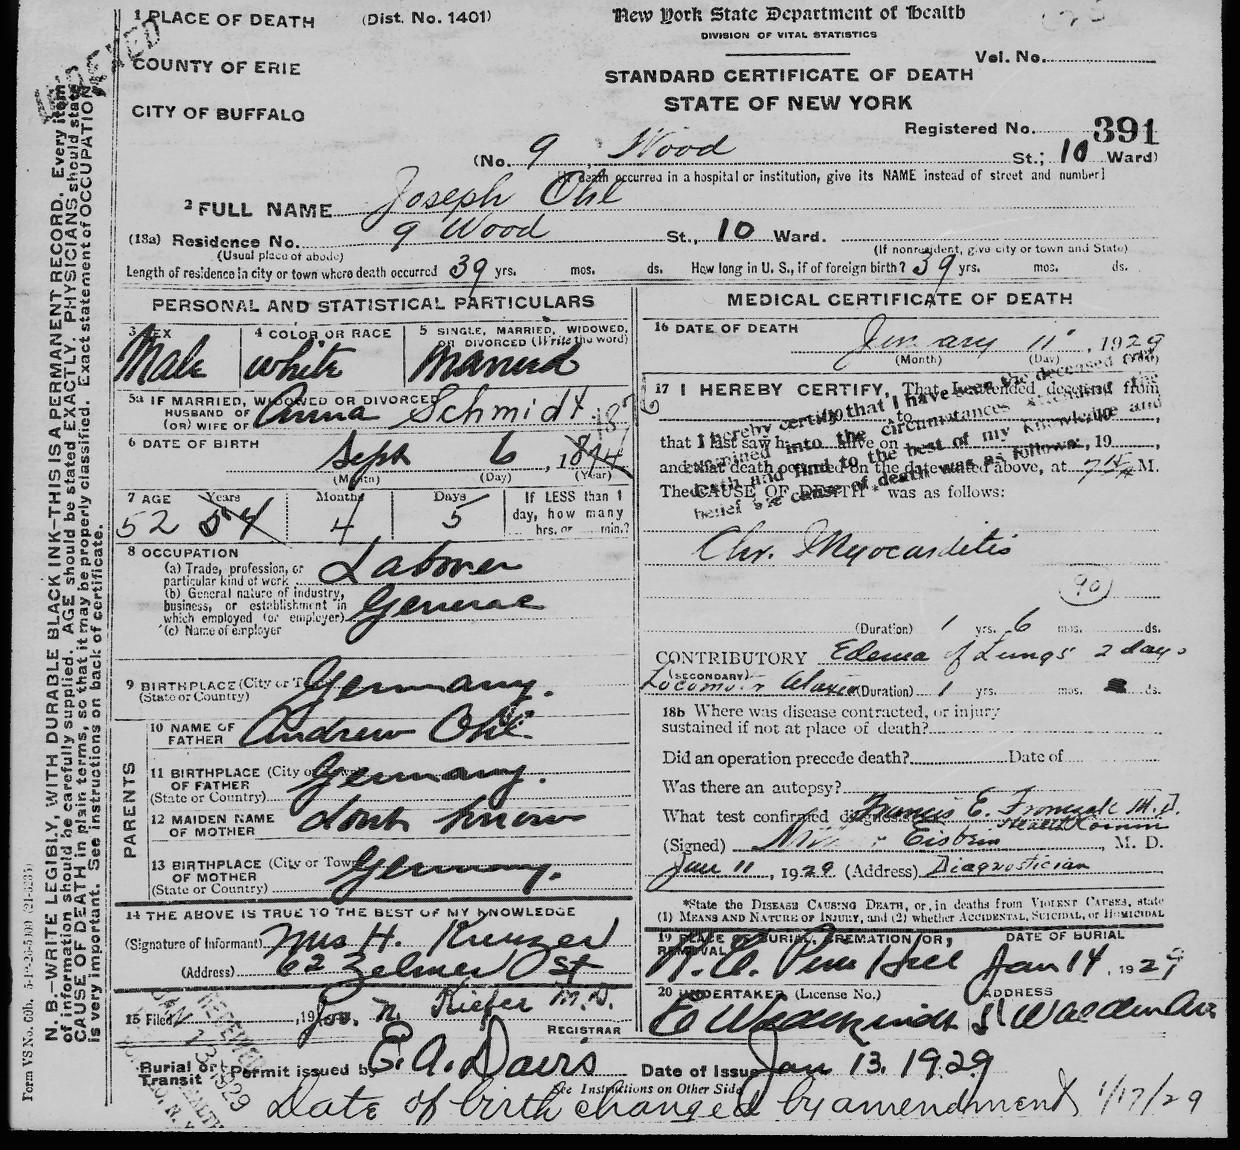 1 PLACE OF DEATH (Dist. No. 1401)
New York State Department of Health
DIVISION OF VITAL STATISTICS
COUNTY OF ERIE
Vol. No.
STANDARD CERTIFICATE OF DEATH
CITY OF BUFFALO
STATE OF NEW YORK
Registered No. 391
(No. 9 Wood St.; 10 Ward)
death occurred in a hospital or institution, give its NAME instead of street and number]
2 FULL NAME Joseph Ohl
(18a) Residence No. 9 Wood St., 10 Ward.
(Usual place of abode) (If nonresident, give city or town and State)
Length of residence in city or town where death occurred 39 yrs. mos. ds. How long in U. S., if of foreign birth? 39 yrs. mos. ds.
PERSONAL AND STATISTICAL PARTICULARS
3 SEX Male
4 COLOR OR RACE white
5 SINGLE, MARRIED, WIDOWED, OR DIVORCED (Write the word) Married
5a IF MARRIED, WIDOWED OR DIVORCED
HUSBAND OF
(OR) WIFE OF Anna Schmidt
6 DATE OF BIRTH Sept 6, 1874
(Month) (Day) (Year)
7 AGE Years Months Days
52 54 4 5
If LESS than 1
day, how many
hrs. or min.?
8 OCCUPATION
(a) Trade, profession, or
particular kind of work Laborer
(b) General nature of industry,
business, or establishment in
which employed (or employer) General
(c) Name of employer
9 BIRTHPLACE (City or Town)
(State or Country) Germany.
PARENTS
10 NAME OF
FATHER Andrew Ohl
11 BIRTHPLACE (City or Town)
OF FATHER
(State or Country) Germany.
12 MAIDEN NAME
OF MOTHER dont know
13 BIRTHPLACE (City or Town)
OF MOTHER
(State or Country) Germany.
14 THE ABOVE IS TRUE TO THE BEST OF MY KNOWLEDGE
(Signature of Informant) Mrs H. Kreuzer
(Address) 62 Zelmer St
15 Filed , 19 Kiefer M.D.
REGISTRAR
MEDICAL CERTIFICATE OF DEATH
16 DATE OF DEATH
January 11, 1929
(Month) (Day)
17 I HEREBY CERTIFY, That I attended deceased from
to
that I last saw h alive on , 19 ,
and that death occurred on the date stated above, at M.
The CAUSE OF DEATH* was as follows:
I hereby certify that I have seen the deceased and
examined into the circumstances attending the
death and find to the best of my knowledge and
belief the cause of death was as follows:
Chr. Myocarditis
90
(Duration) 1 yrs. 6 mos. ds.
CONTRIBUTORY Edema of Lungs 2 days
(SECONDARY)
Locomotor Ataxia (Duration) 1 yrs. mos. ds.
18b Where was disease contracted, or injury
sustained if not at place of death?
Did an operation precede death? Date of
Was there an autopsy?
What test confirmed diagnosis Francis E. Fronczak M.D.
Health Comm
(Signed) , M. D.
Jan 11, 1929 (Address) Diagnostician
*State the DISEASE CAUSING DEATH, or, in deaths from VIOLENT CAUSES, state
(1) MEANS AND NATURE OF INJURY, and (2) whether ACCIDENTAL, SUICIDAL, or HOMICIDAL
19 PLACE OF BURIAL, CREMATION OR, REMOVAL DATE OF BURIAL
Pine Hill Jan 14, 1929
20 UNDERTAKER (License No.) ADDRESS
Walden Ave
Burial or
Transit Permit issued by E. A. Davis Date of Issue Jan 13. 1929
See Instructions on Other Side
Date of birth changed by amendment 1/17/29
RECEIVED
JAN 13 1929
N. B.—WRITE LEGIBLY, WITH DURABLE BLACK INK—THIS IS A PERMANENT RECORD. Every item
of information should be carefully supplied. AGE should be stated EXACTLY. PHYSICIANS should state
CAUSE OF DEATH in plain terms, so that it may be properly classified. Exact statement of OCCUPATION
is very important. See instructions on back of certificate.